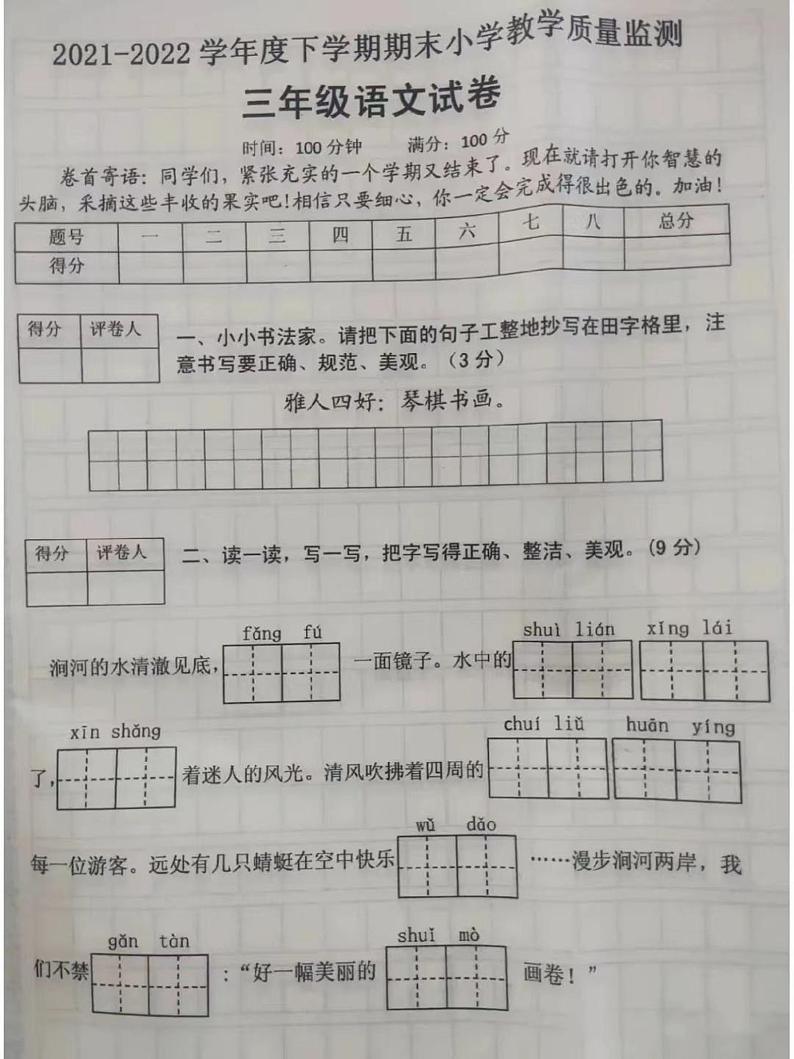 2021-2022学年度下学期期末小学教学质量监测
三年级语文试卷
时间：100分钟 满分：100分
卷首寄语：同学们，紧张充实的一个学期又结束了。现在就请打开你智慧的
头脑，采摘这些丰收的果实吧！相信只要细心，你一定会完成得很出色的。加油！
题号 一 二 三 四 五 六 七 八 总分
得分
得分 评卷人
一、小小书法家。请把下面的句子工整地抄写在田字格里，注
意书写要正确、规范、美观。（3分）
雅人四好：琴棋书画。
得分 评卷人
二、读一读，写一写，把字写得正确、整洁、美观。(9分)
fǎng fú shuì lián xǐng lái
涧河的水清澈见底， 一面镜子。水中的
xīn shǎng chuí liǔ huān yíng
了， 着迷人的风光。清风吹拂着四周的
wǔ dǎo
每一位游客。远处有几只蜻蜓在空中快乐 ……漫步涧河两岸，我
gǎn tàn shuǐ mò
们不禁 ：“好一幅美丽的 画卷！”